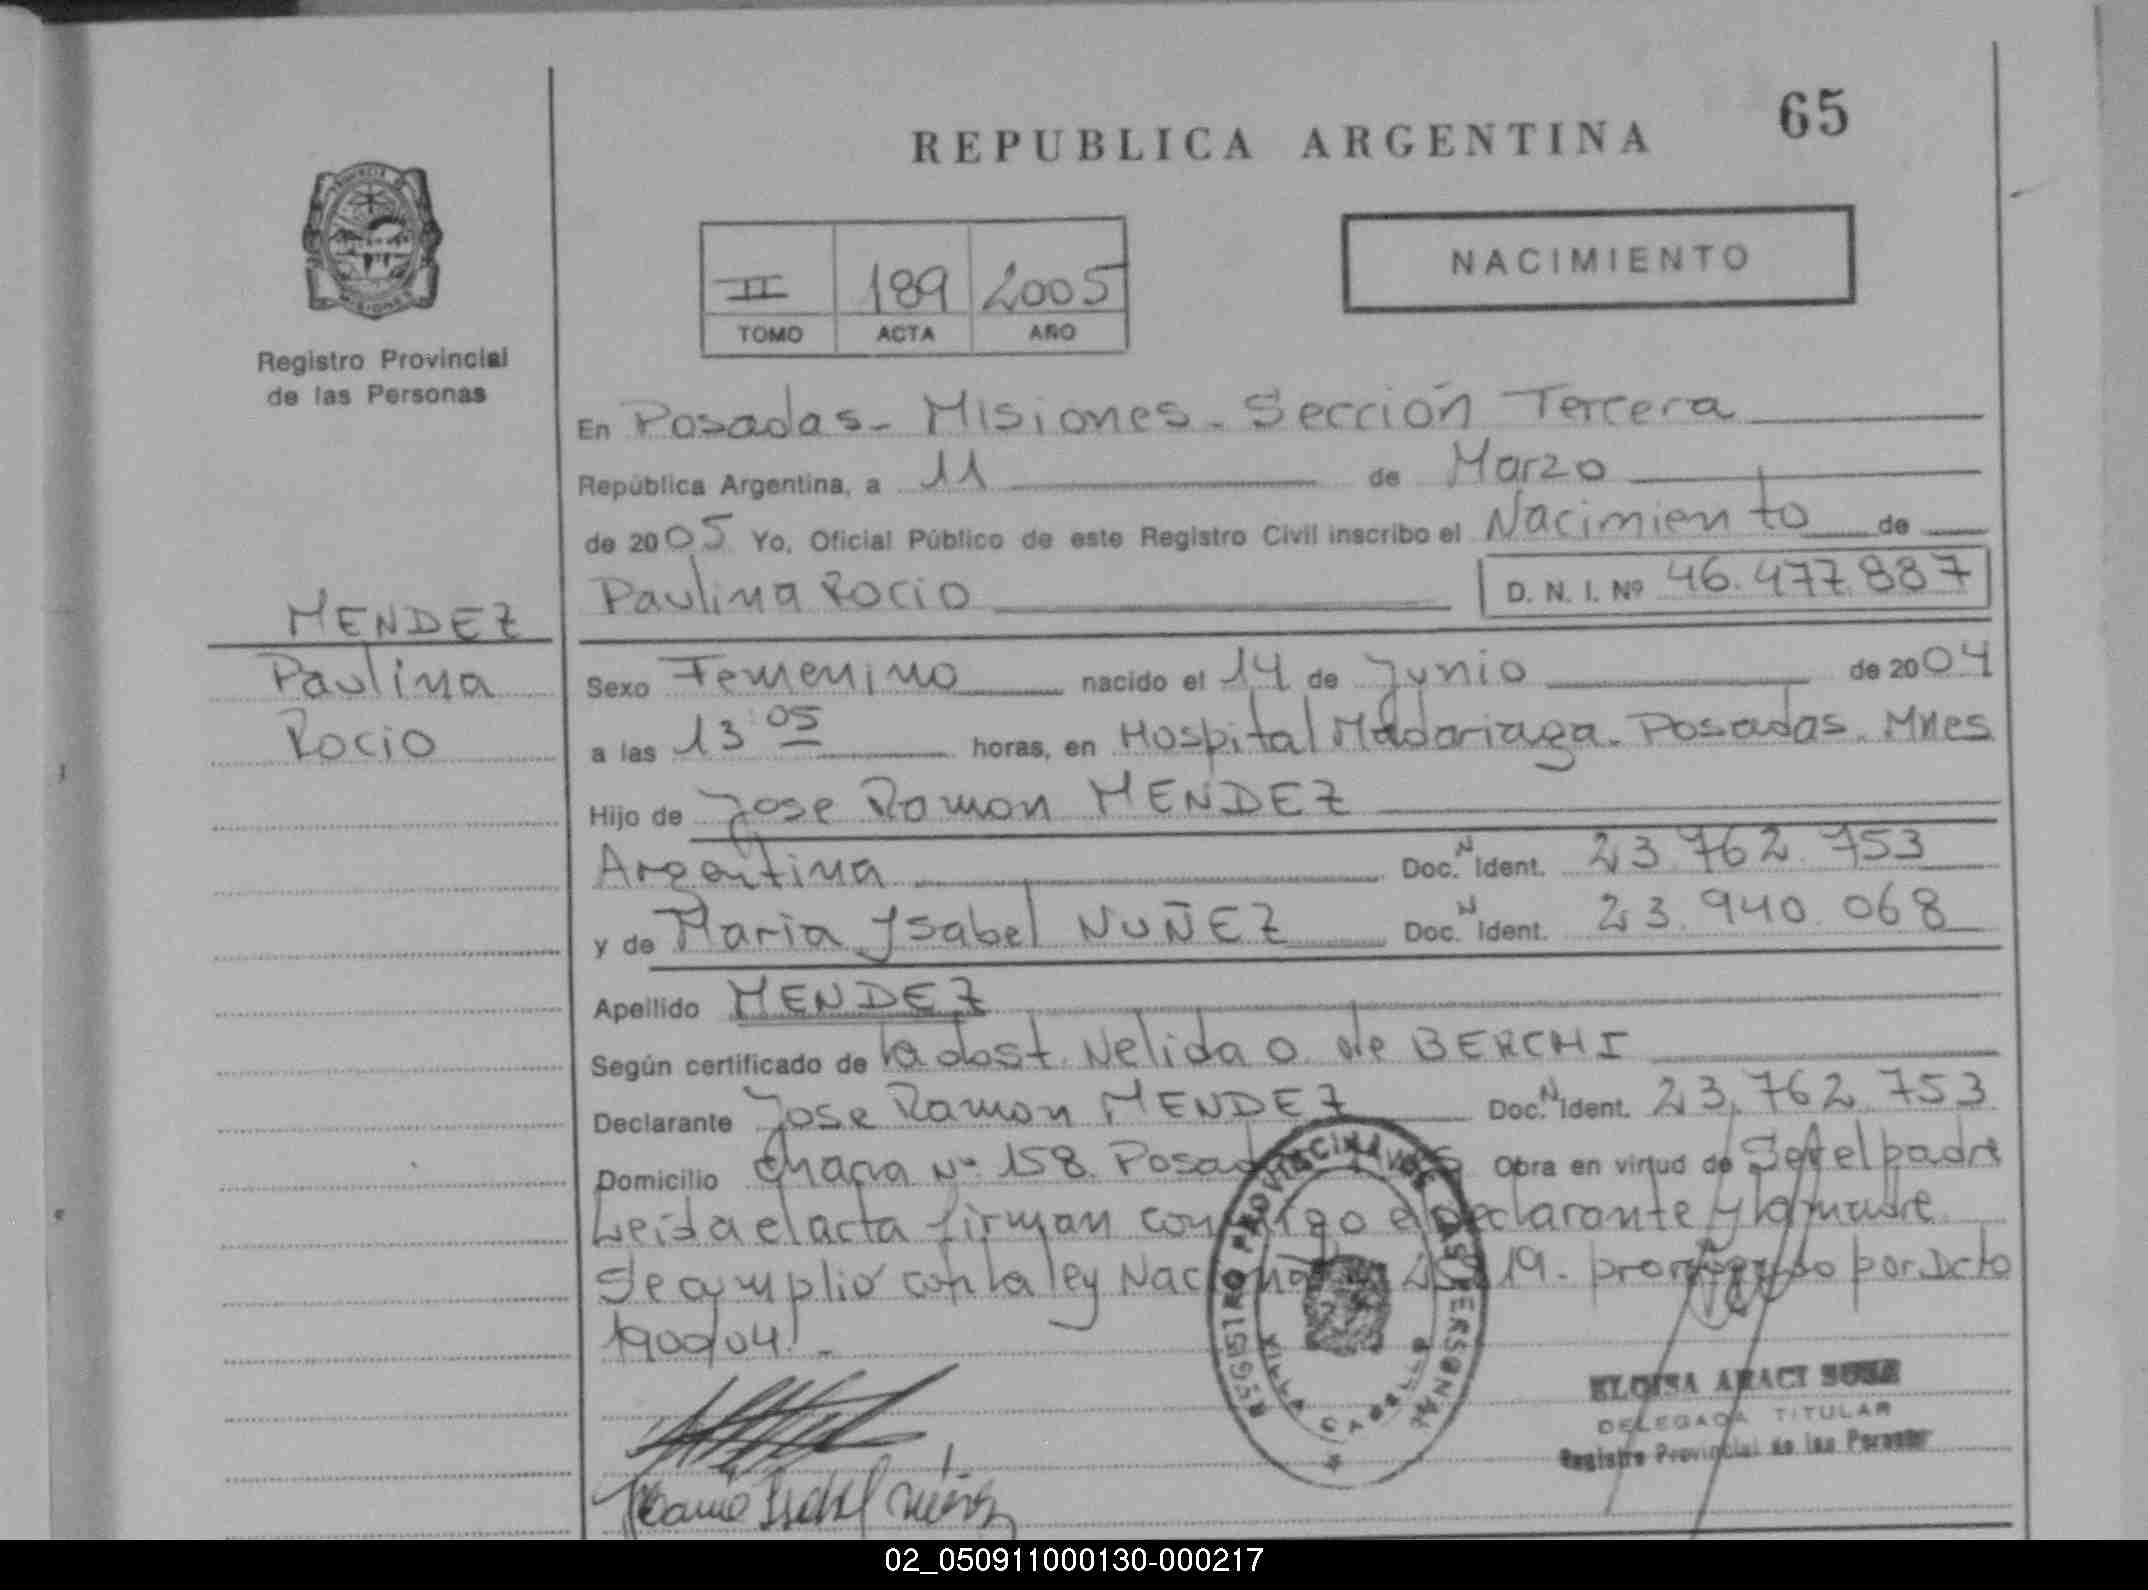 65
REPUBLICA ARGENTINA
NACIMIENTO
II 189 2005
TOMO ACTA AÑO
Registro Provincial
de las Personas
En Posadas - Misiones - Sección Tercera
República Argentina, a 11 de Marzo
de 2005 Yo, Oficial Público de este Registro Civil inscribo el Nacimiento de
Paulina Rocio D. N. I. Nº 46.477.887
MENDEZ
Paulina
Rocio
Sexo Femenino nacido el 14 de Junio de 2004
a las 13 05 horas, en Hospital Madariaga. Posadas. Mnes
Hijo de Jose Ramon MENDEZ
Argentina Doc. N Ident. 23.762.753
y de Maria Ysabel NUÑEZ Doc. N Ident. 23.940.068
Apellido MENDEZ
Según certificado de la obst. Nelida O. de BERCHI
Declarante Jose Ramon MENDEZ Doc. N Ident. 23.762.753
Domicilio Chacra Nº 158. Obra en virtud de Ser el padre
Leida el acta firman conmigo el declarante y la madre
Se cumplió con la ley Nacional 19. prorrogado por Dcto
1900/04.-
REGISTRO PROVINCIAL DE LAS PERSONAS
VILLA CABELLO
ELOISA ARACI
DELEGADA TITULAR
Registro Provincial de las Personas
Maria Isabel Núñez
02_050911000130-000217